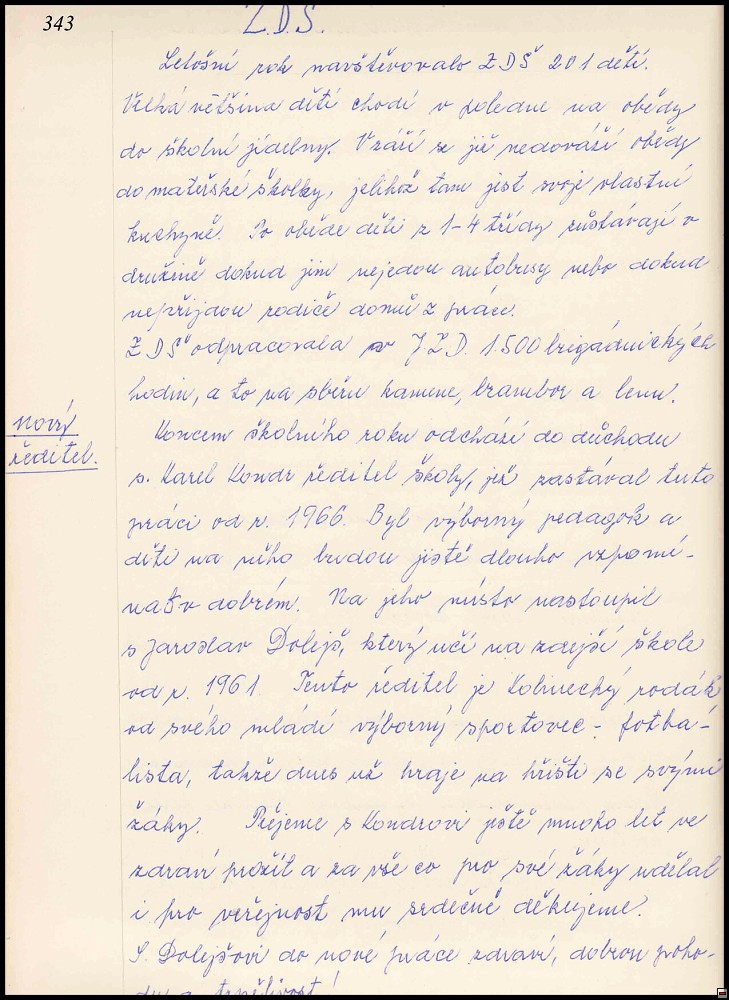 343
Z.D.Š.
Letošní rok navštěvovalo ZDŠ 201 dětí.
Velká většina dětí chodí v poledne na obědy
do školní jídelny. V září se již nedováží obědy
do mateřské školky, jelikož tam jist svoje vlastní
kuchyně. Po obědě děti z 1-4 třídy zůstávají v
družině dokud jim nejedou autobusy nebo dokud
nepřijdou rodiče domů z práce.
ZDŠ odpracovala v J.Z.D. 1.500 brigádnických
hodin, a to na sběru kamene, brambor a lenu.
nový
ředitel.
Koncem školního roku odchází do důchodu
s. Karel Kondr ředitel školy, jež zastával tuto
práci od r. 1966. Byl výborný pedagog a
děti na něho budou jistě dlouho vzpomí-
nat v dobrém. Na jeho místo nastoupil
s Jaroslav Dolejš, který učí na zdejší škole
od r. 1961. Tento ředitel je Kolinecký rodák
od svého mládí výborný sportovec - fotba-
lista, takže dnes už hraje na hřišti se svými
žáky. Přejeme s Kondrovi ještě mnoho let ve
zdraví prožít a za vše co pro své žáky udělal
i pro veřejnost mu srdečně děkujeme.
S. Dolejšovi do nové práce zdraví, dobrou poho-
du a trpělivost!